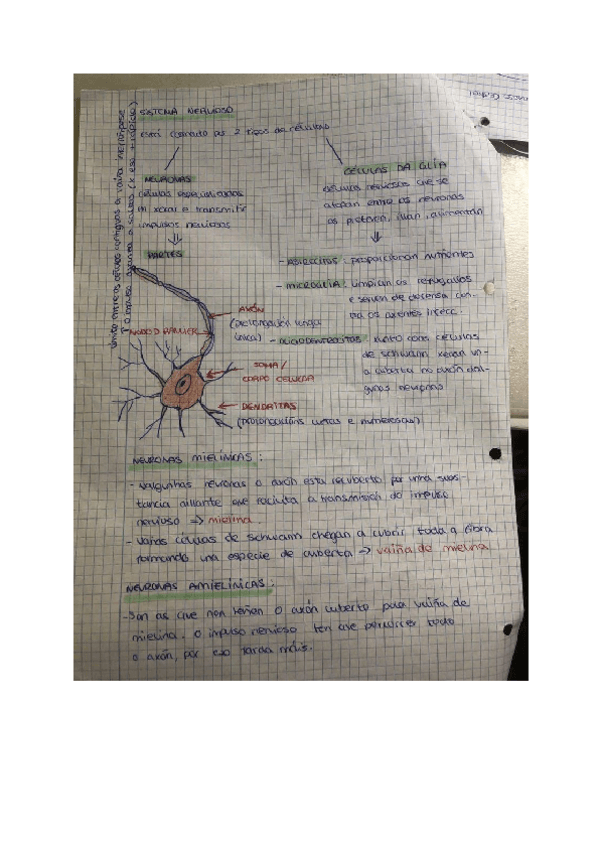 SISTEMA NERVIOSO
está formado por 2 tipos de células
NEURONAS
células especializadas
en xerar e transmitir
impulsos nerviosos
PARTES
CÉLULAS DA GLÍA
células nerviosas que se
atopan entre as neuronas
as protexen, illan, alimentan
- ASTROCITOS: proporcionan nutrientes
- MICROGLIA: limpian os refugallos
e serven de defensa con-
tra os axentes infecc.
- OLIGODENDROCITOS: xunto coas células
de schwann xeran un-
a cuberta no axón dal-
gunhas neuronas
AXÓN
(prolongación longa
única)
NODO D RANVIER
SOMA/
CORPO CELULAR
DENDRITAS
(prolongacións curtas e numerosas)
NEURONAS MIELÍNICAS:
- Nalgunhas neuronas o axón está recuberto por unha sus-
tancia aillante que facilita a transmisión do impulso
nervioso → mielina.
- Varias células de schwann chegan a cubrir toda a fibra
formando una especie de cuberta → vaíña de mielina
NEURONAS AMIELÍNICAS:
- Son as que non teñen o axón cuberto pola vaíña de
mielina. O impulso nervioso ten que percorrer todo
o axón, por eso tarda máis.